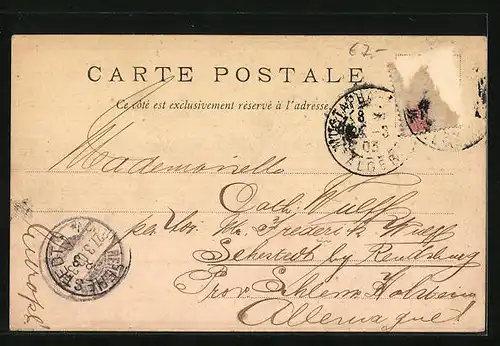 62-
CARTE POSTALE
Ce côté est exclusivement réservé à l'adresse
MUSTAPHA
ALGER
Mademoiselle
Cath. Wulff
Mr. Frederic Wulff
Sehestedt by Rendsburg
Prov. Schlesw. Holstein
Allemagne!
Europe